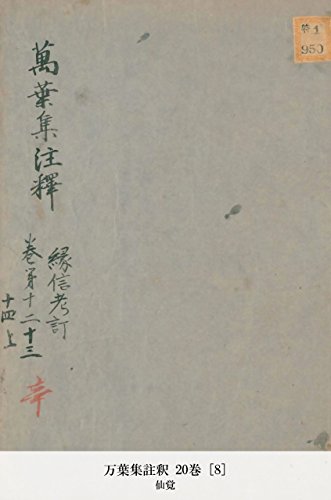 特1
950
萬葉集注釋
縁信考訂
巻第十二十三
十四上
辛
万葉集註釈 20巻 [8]
仙覚